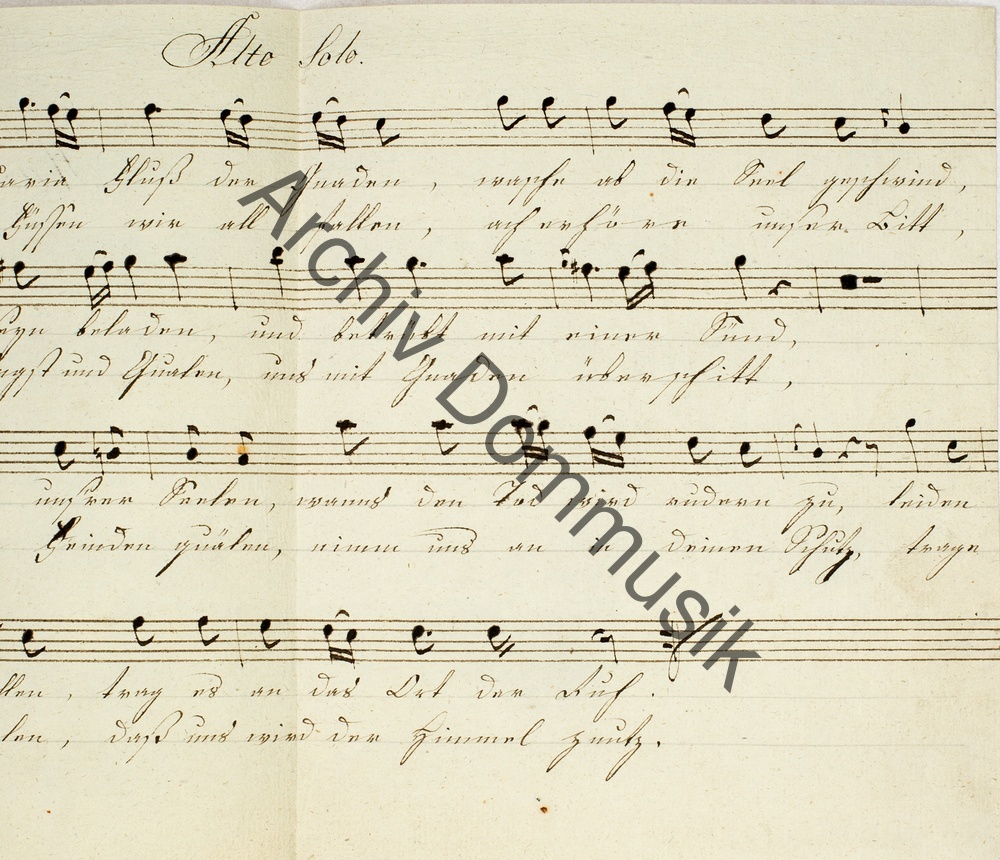 Alto Solo.
aria Fluß der Gnaden, wasche ab die Seel geschwind,
Füssen wir all fallen, ach erhöre unser Bitt,
beladen, und betrübt mit einer Sünd,
ngst und Qualen, uns mit Gnaden überschitt,
uns'rer Seelen, wanns den Tod wird rudern zu, leiden
Feinden quälen, nimm uns an in deinen Schutz, trage
llen, trag es an das Ort der Ruh.
len, daß uns wird der Himmel znutz.
Archiv Dommusik